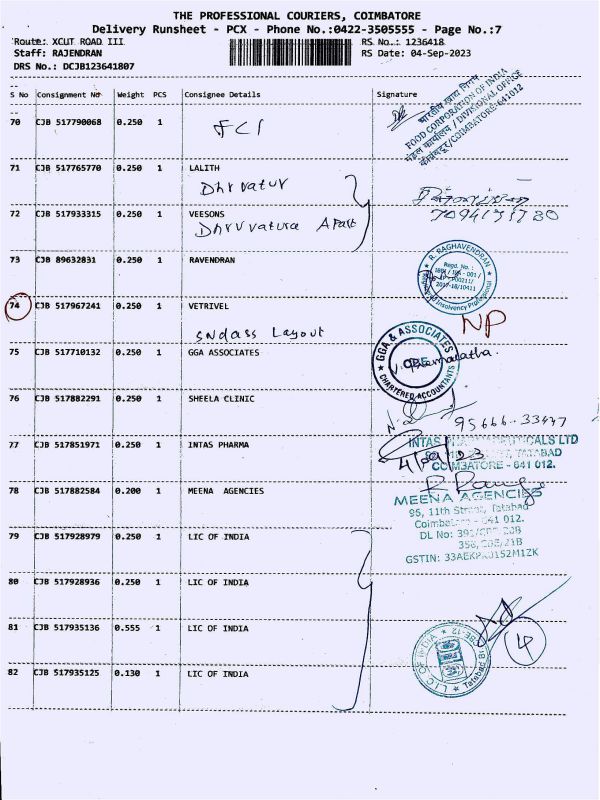 THE PROFESSIONAL COURIERS, COIMBATORE
Delivery Runsheet - PCX - Phone No.:0422-3505555 - Page No.:7
Route: XCUT ROAD III RS No.: 1236418
Staff: RAJENDRAN RS Date: 04-Sep-2023
DRS No.: DCJB123641807
S No Consignment No Weight PCS Consignee Details Signature
70 CJB 517790068 0.250 1 FCI
भारतीय खाद्य निगम
FOOD CORPORATION OF INDIA
मंडल कार्यालय / DIVISIONAL OFFICE
कोयंबटूर/COIMBATORE-641012
71 CJB 517765770 0.250 1 LALITH
Dhrvatur
72 CJB 517933315 0.250 1 VEESONS
Dhruvatura Apart
73 CJB 89632831 0.250 1 RAVENDRAN
R. RAGHAVENDRAN
Regd. No. :
Insolvency Professional
74 CJB 517967241 0.250 1 VETRIVEL
Sndass Layout
NP
75 CJB 517710132 0.250 1 GGA ASSOCIATES
GGA & ASSOCIATES
CBE
CHARTERED ACCOUNTANTS
76 CJB 517882291 0.250 1 SHEELA CLINIC
95666-33477
77 CJB 517851971 0.250 1 INTAS PHARMA
INTAS PHARMACEUTICALS LTD
TATABAD
COIMBATORE - 641 012.
4/09/23
78 CJB 517882584 0.200 1 MEENA AGENCIES
MEENA AGENCIES
95, 11th Street, Tatabad
Coimbatore - 641 012.
DL No: 391/CBE/20B
358, CBE/21B
79 CJB 517928979 0.250 1 LIC OF INDIA
80 CJB 517928936 0.250 1 LIC OF INDIA
81 CJB 517935136 0.555 1 LIC OF INDIA
82 CJB 517935125 0.130 1 LIC OF INDIA
L.I.C. OF INDIA
CBE-12
Tatabad
4